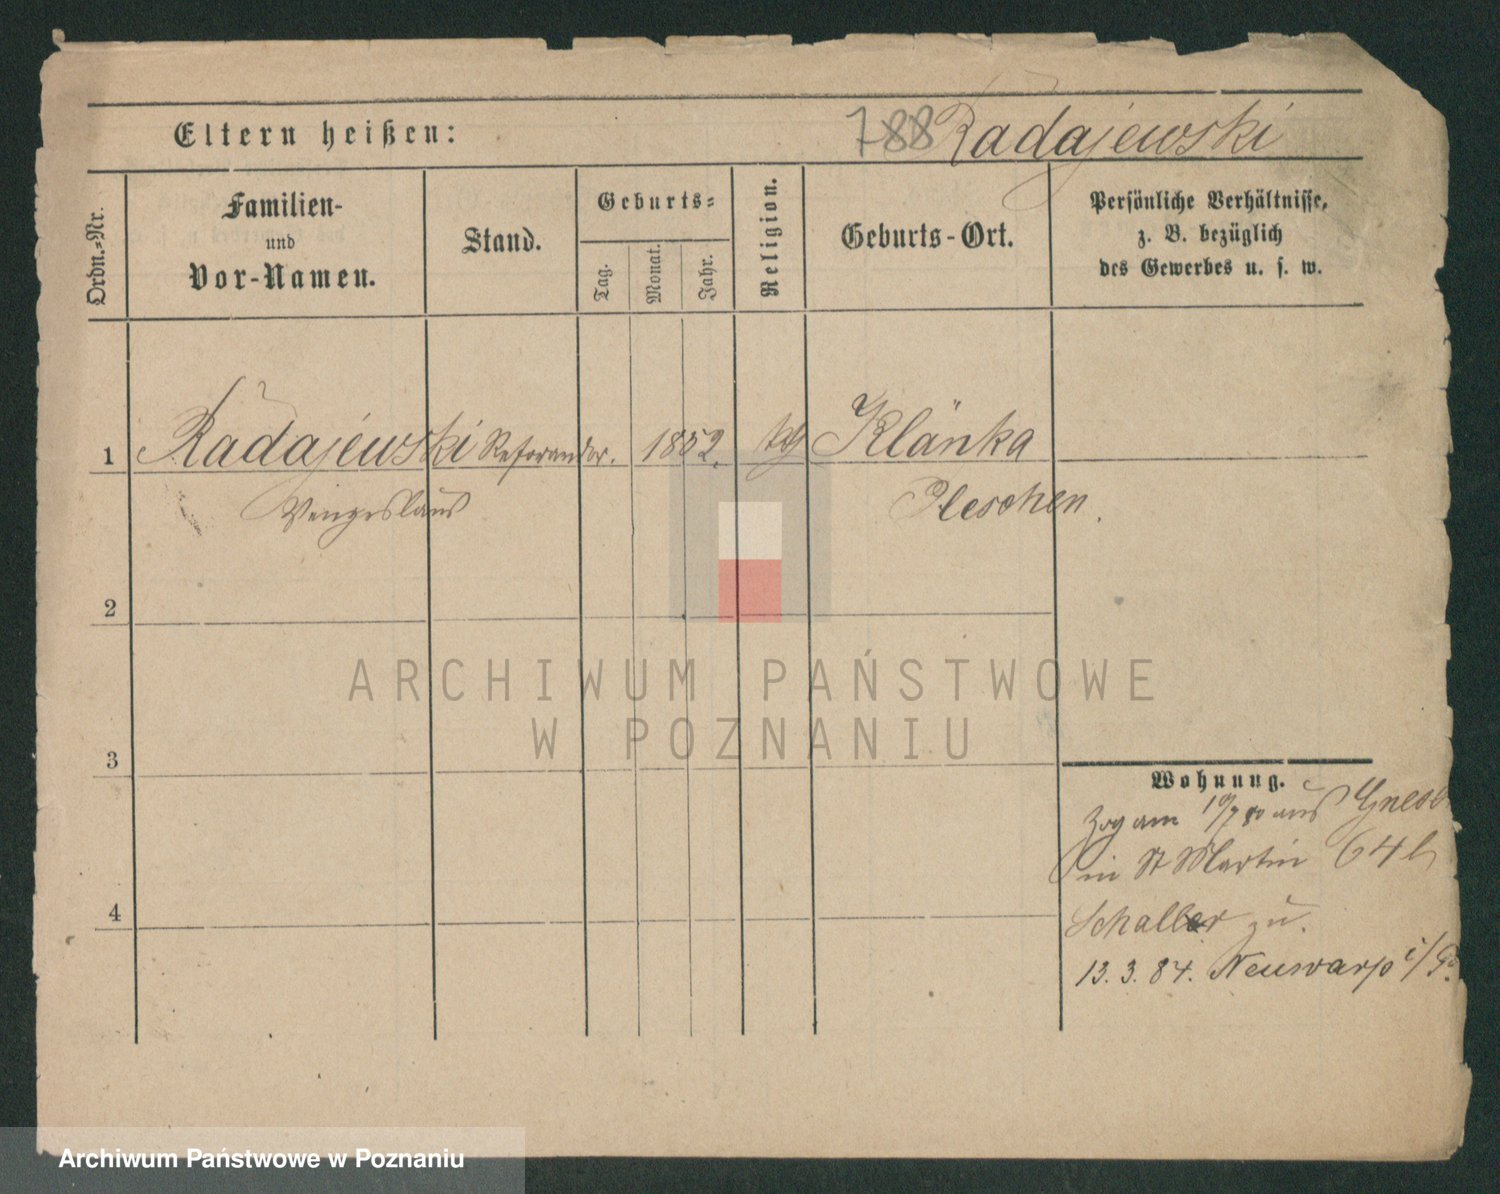 Eltern heißen:
788 Radajewski
Ordn.-Nr.
Familien-
und
Vor-Namen.
Stand.
Geburts-
Tag.
Monat.
Jahr.
Religion.
Geburts-Ort.
Persönliche Verhältnisse,
z. B. bezüglich
des Gewerbes u. s. w.
1 Radajewski Referendar. 1852. kth Klänka
Wenzeslaus Pleschen.
2
3
4
Wohnung.
Zog am 10/7 80 aus Gnesen
in St Martin 64 b
Schaller zu.
13. 3. 84. Neuwarp i/Po.
ARCHIWUM PAŃSTWOWE
W POZNANIU
Archiwum Państwowe w Poznaniu